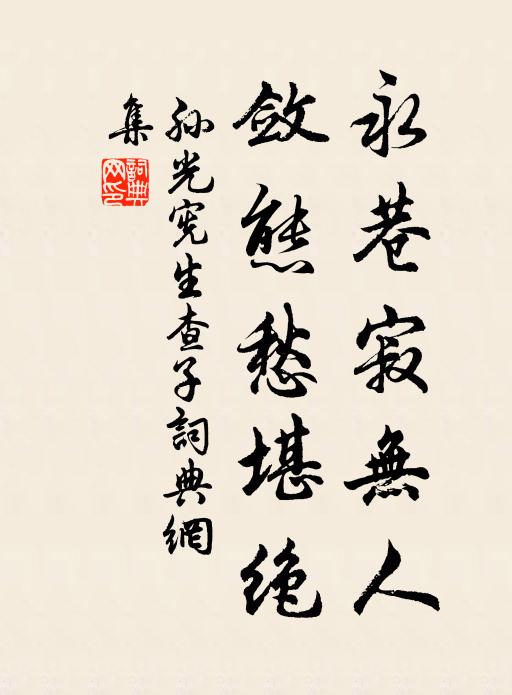 永巷寂無人
斂態愁堪絶
孙光宪生查子詞典網
集
詞典網印